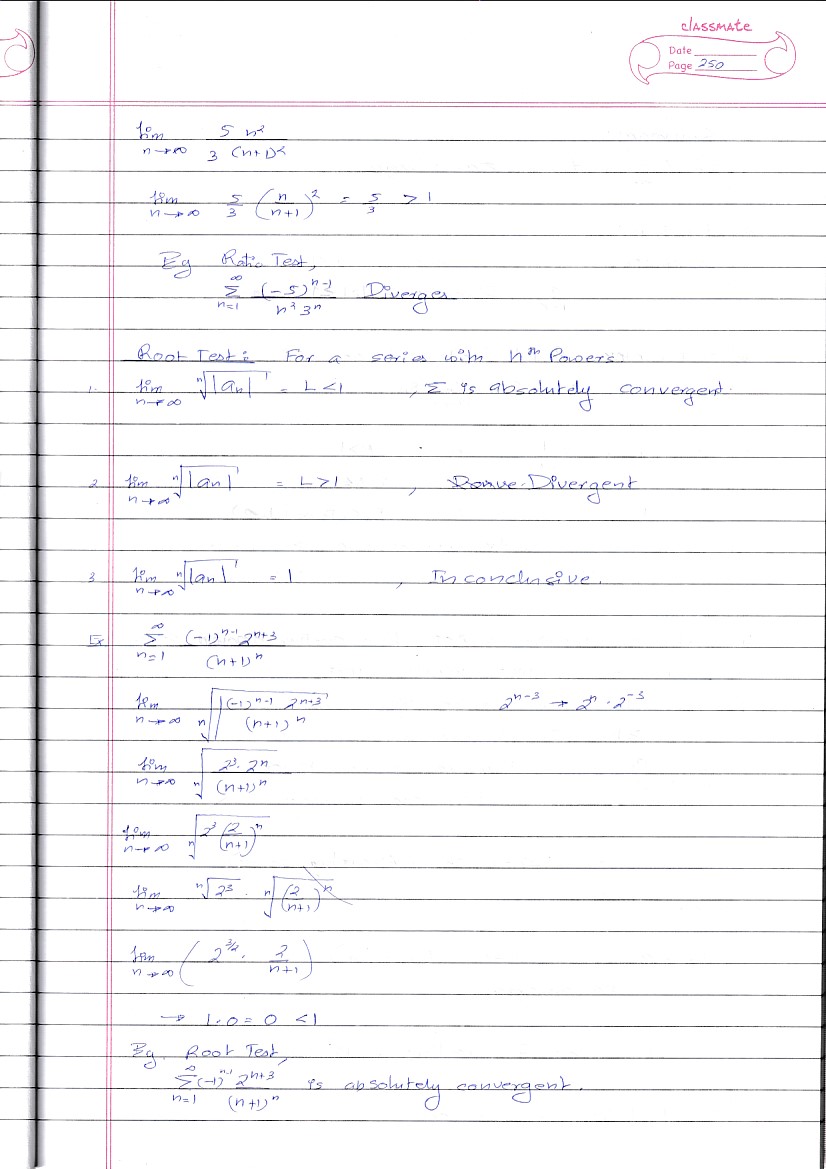 classmate
Date
Page 250
lim n→∞ 5 n² / 3 (n+1)²
lim n→∞ 5/3 (n/(n+1))² = 5/3 > 1
By Ratio Test,
∞ Σ n=1 (-5)ⁿ⁻¹ / n² 3ⁿ Diverges
Root Test: For a series with nth Powers.
1. lim n→∞ ⁿ√|an| = L < 1 , Σ is absolutely convergent.
2 lim n→∞ ⁿ√|an| = L > 1 , Divergent
3 lim n→∞ ⁿ√|an| = 1 , Inconclusive.
Ex ∞ Σ n=1 (-1)ⁿ⁻¹ 2ⁿ⁺³ / (n+1)ⁿ
lim n→∞ ⁿ√|(-1)ⁿ⁻¹ 2ⁿ⁺³ / (n+1)ⁿ 2ⁿ⁻³ → 2ⁿ · 2⁻³
lim n→∞ ⁿ√(2³ · 2ⁿ / (n+1)ⁿ)
lim n→∞ ⁿ√(2³ (2/(n+1))ⁿ)
lim n→∞ ⁿ√2³ · ⁿ√(2/(n+1))ⁿ
lim n→∞ (2^(3/n) · 2/(n+1))
→ 1·0 = 0 < 1
By Root Test,
∞ Σ n=1 (-1)ⁿ⁻¹ 2ⁿ⁺³ / (n+1)ⁿ is absolutely convergent.